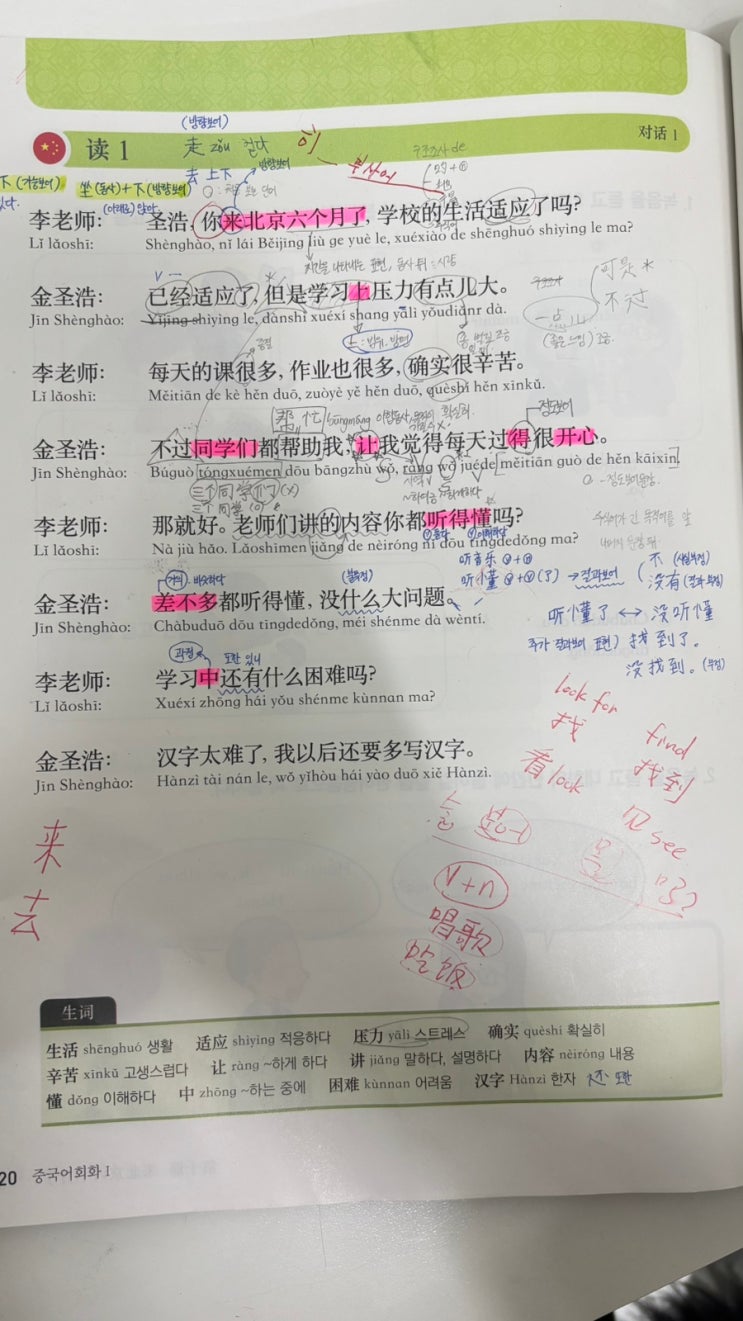 (방향보어)
走 zǒu 걷다
读 1
对话 1
구조조사 de
去 上下
방향보어
下 (가능보어)
坐 (동사) + 下 (방향보어)
(아래로) 앉아
李老师: 圣浩, 你来北京六个月了, 学校的生活适应了吗?
Lǐ lǎoshī: Shènghào, nǐ lái Běijīng liù ge yuè le, xuéxiào de shēnghuó shìyìng le ma?
金圣浩: 已经适应了, 但是学习上压力有点儿大。
Jīn Shènghào: Yǐjīng shìyìng le, dànshì xuéxí shang yālì yǒudiǎnr dà.
可是
不过
一点儿
李老师: 每天的课很多, 作业也很多, 确实很辛苦。
Lǐ lǎoshī: Měitiān de kè hěn duō, zuòyè yě hěn duō, quèshí hěn xīnkǔ.
帮忙 bāngmáng
정도보어
金圣浩: 不过同学们都帮助我, 让我觉得每天过得很开心。
Jīn Shènghào: Búguò tóngxuémen dōu bāngzhù wǒ, ràng wǒ juéde měitiān guò de hěn kāixīn.
三个同学们 (X)
三个同学 (O)
李老师: 那就好。老师们讲的内容你都听得懂吗?
Lǐ lǎoshī: Nà jiù hǎo. Lǎoshīmen jiǎng de nèiróng nǐ dōu tīngdedǒng ma?
听音乐
听懂
(了) → 결과보어
不
没有
거의 비슷하다
金圣浩: 差不多都听得懂, 没什么大问题。
Jīn Shènghào: Chàbuduō dōu tīngdedǒng, méi shénme dà wèntí.
听懂了 ↔ 没听懂
找到了.
没找到.
李老师: 学习中还有什么困难吗?
Lǐ lǎoshī: Xuéxí zhōng hái yǒu shénme kùnnan ma?
look for
找
find
找到
看 look
见 see
金圣浩: 汉字太难了, 我以后还要多写汉字。
Jīn Shènghào: Hànzì tài nán le, wǒ yǐhòu hái yào duō xiě Hànzì.
来
去
V+n
唱歌
吃饭
生词
生活 shēnghuó 생활 适应 shìyìng 적응하다 压力 yālì 스트레스 确实 quèshí 확실히
辛苦 xīnkǔ 고생스럽다 让 ràng ~하게 하다 讲 jiǎng 말하다, 설명하다 内容 nèiróng 내용
懂 dǒng 이해하다 中 zhōng ~하는 중에 困难 kùnnan 어려움 汉字 Hànzì 한자 还 또한
20 중국어회화 I